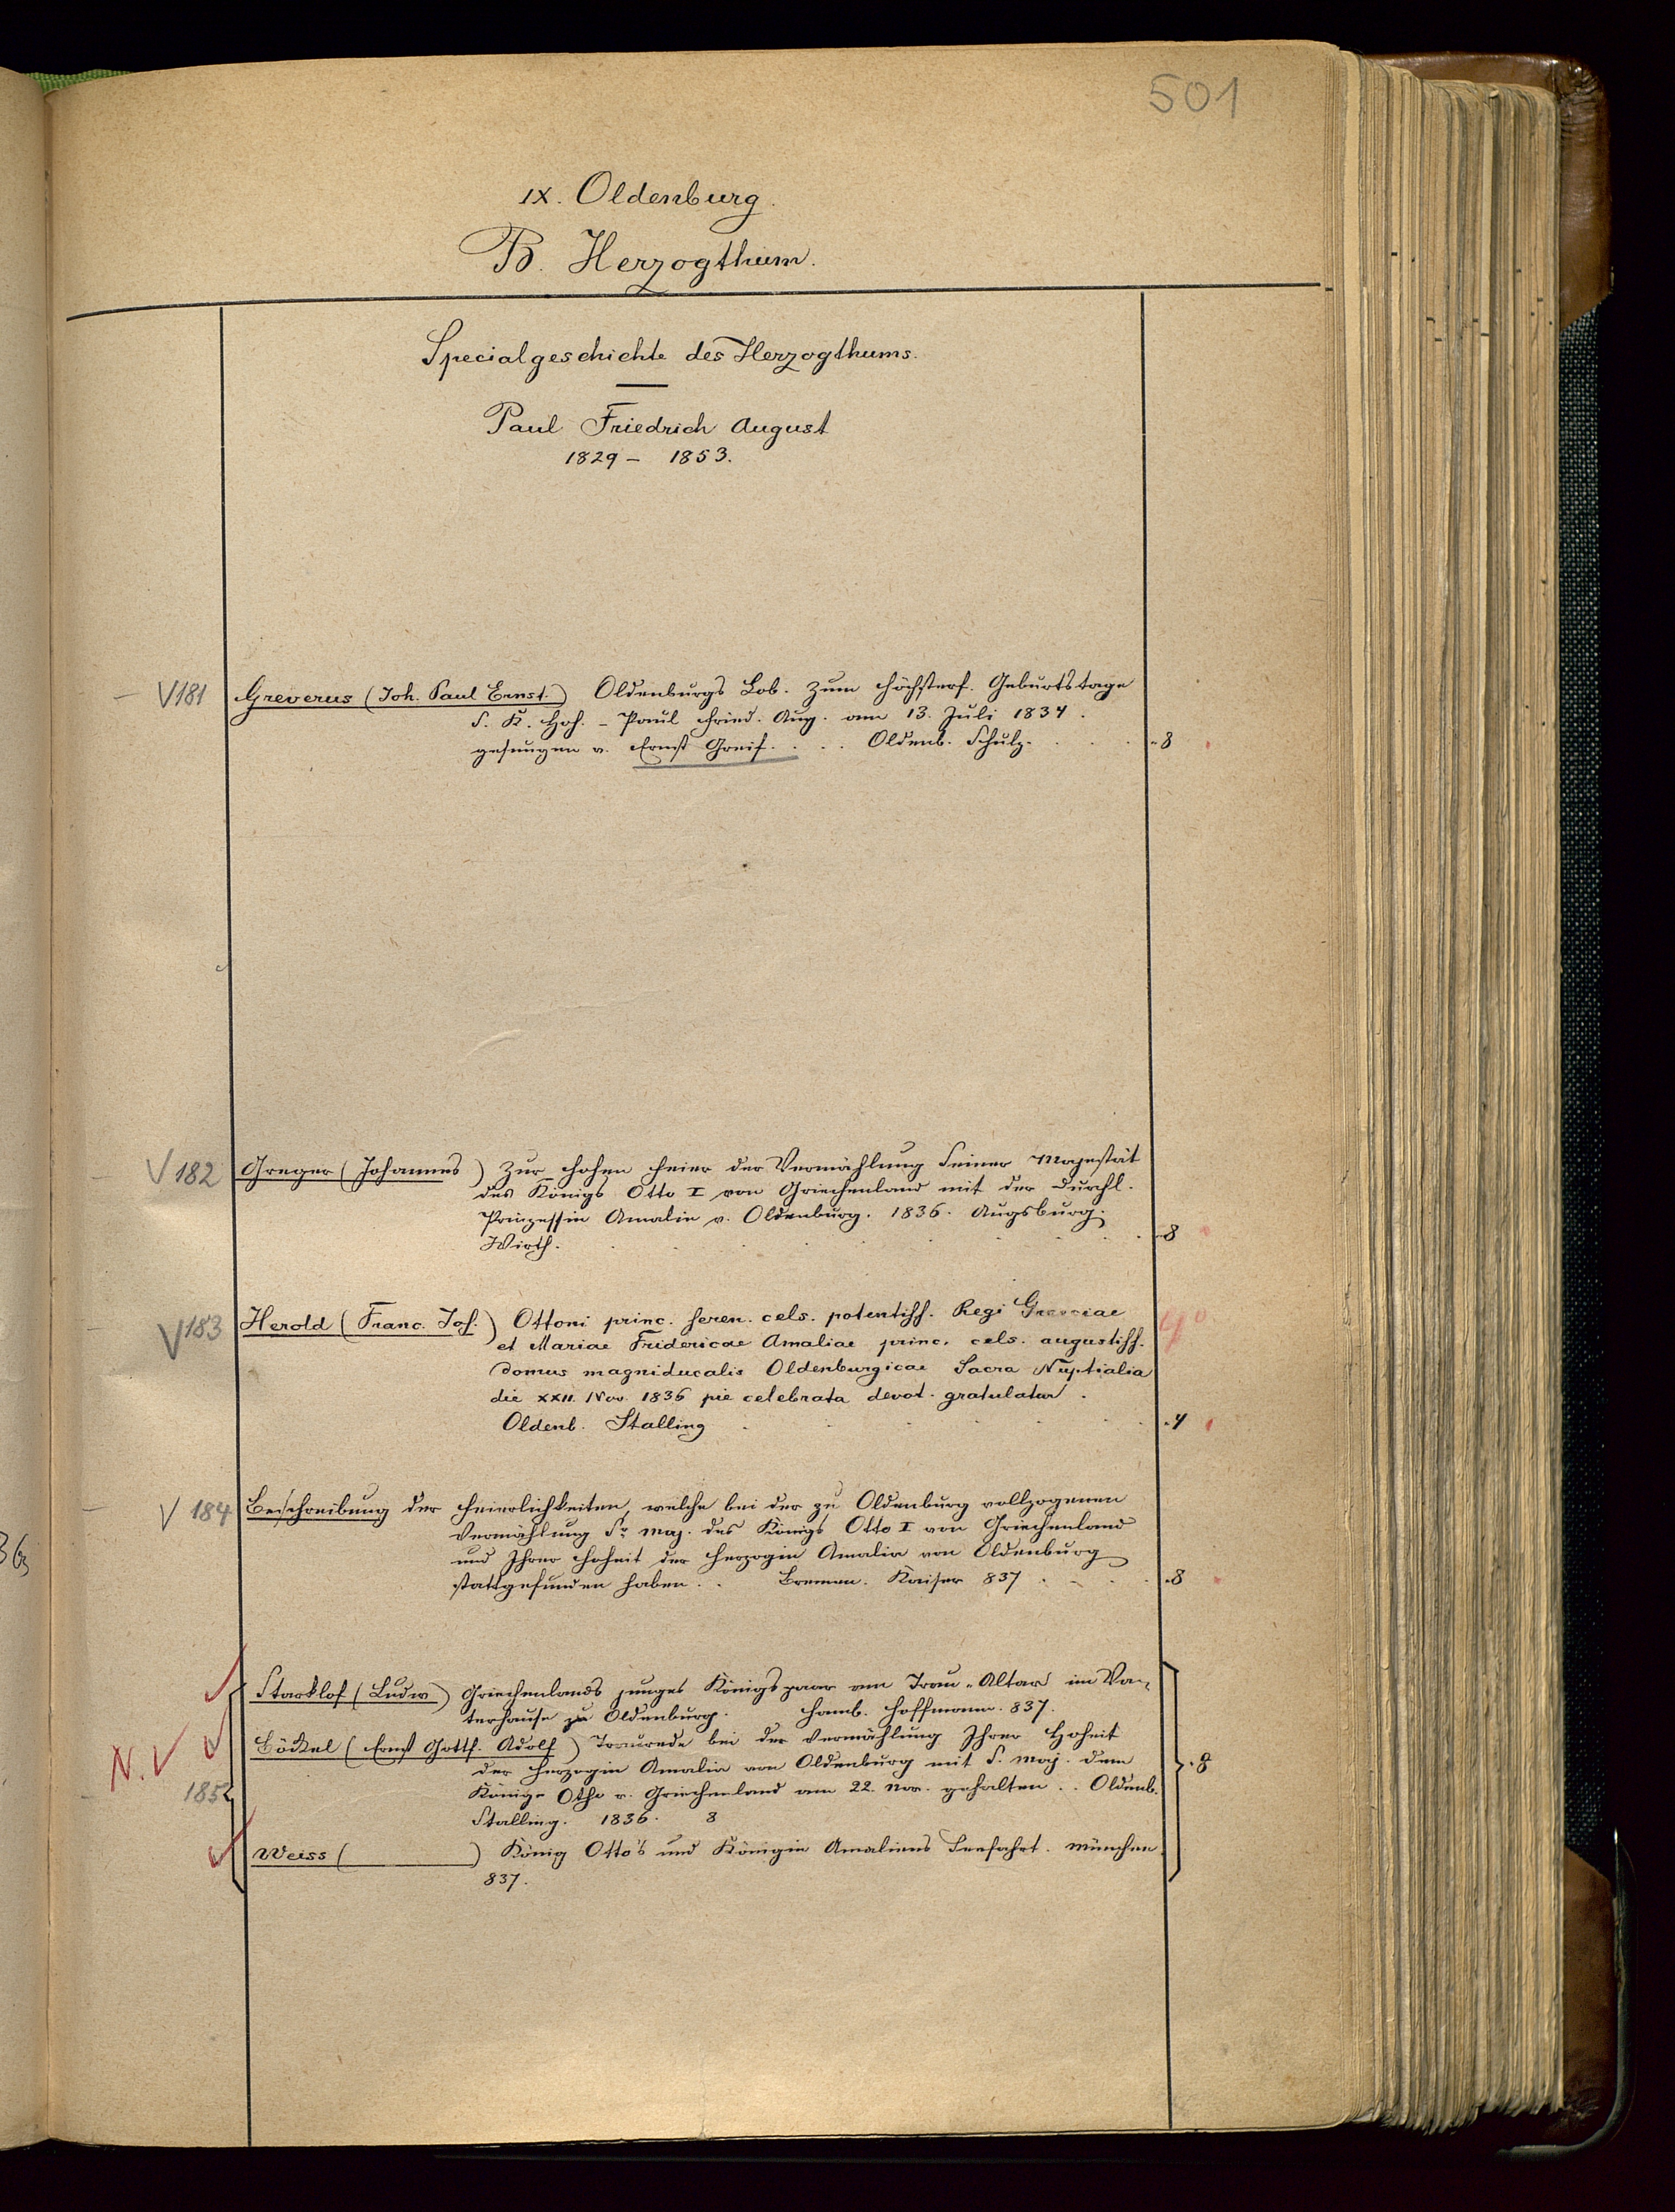 501
IX. Oldenburg.
B. Herzogthum.
Specialgeschichte des Herzogthums.
Paul Friedrich August
1829 – 1853.
V181 Greverus (Joh. Paul Ernst.) Oldenburgs Lob. Zum höchsterf. Geburtstage
S. K. Hoh. – Paul Fried. Aug. am 13. Juli 1834.
gesungen v. Ernst Greif. . . . Oldenb. Schulz. . . . . 8
V182 Greger (Johannes) Zur hohen Feier der Vermählung Seiner Majestät
des Königs Otto I von Griechenland mit der Durchl.
Prinzessin Amalie v. Oldenburg. 1836. Augsburg.
Wirth. . . . . . . . 8
V183 Herold (Franc. Jos.) Ottoni princ. seren. cels. potentiss. Regi Graeciae 4°
et Mariae Fridericae Amaliae princ. cels. augustiss.
domus magniducalis Oldenburgicae Sacra Nuptialia
die XXII. Nov. 1836 pie celebrata devot. gratulatur.
Oldenb. Stalling . . . . . 4
V 184 Beschreibung der Feierlichkeiten, welche bei der zu Oldenburg vollzogenen
Vermählung Sr. Maj. des Königs Otto I von Griechenland
und Ihrer Hoheit der Herzogin Amalia von Oldenburg
stattgefunden haben. . Bremen. Kaiser 837 . . . . 8
Starklof (Ludw) Griechenlands junges Königspaar am Trau-Altar im Va-
terhause zu Oldenburg. Hamb. Hoffmann. 837.
N. V Böckel (Ernst Gottf. Adolf) Traurede bei der Vermählung Ihrer Hoheit
der Herzogin Amalia von Oldenburg mit S. Maj. dem 8
185 Könige Otho v. Griechenland am 22. Nov. gehalten . . Oldenb.
Stalling. 1836. 8
Weiss ( ) König Otto's und Königin Amaliens Seefahrt. München
837.